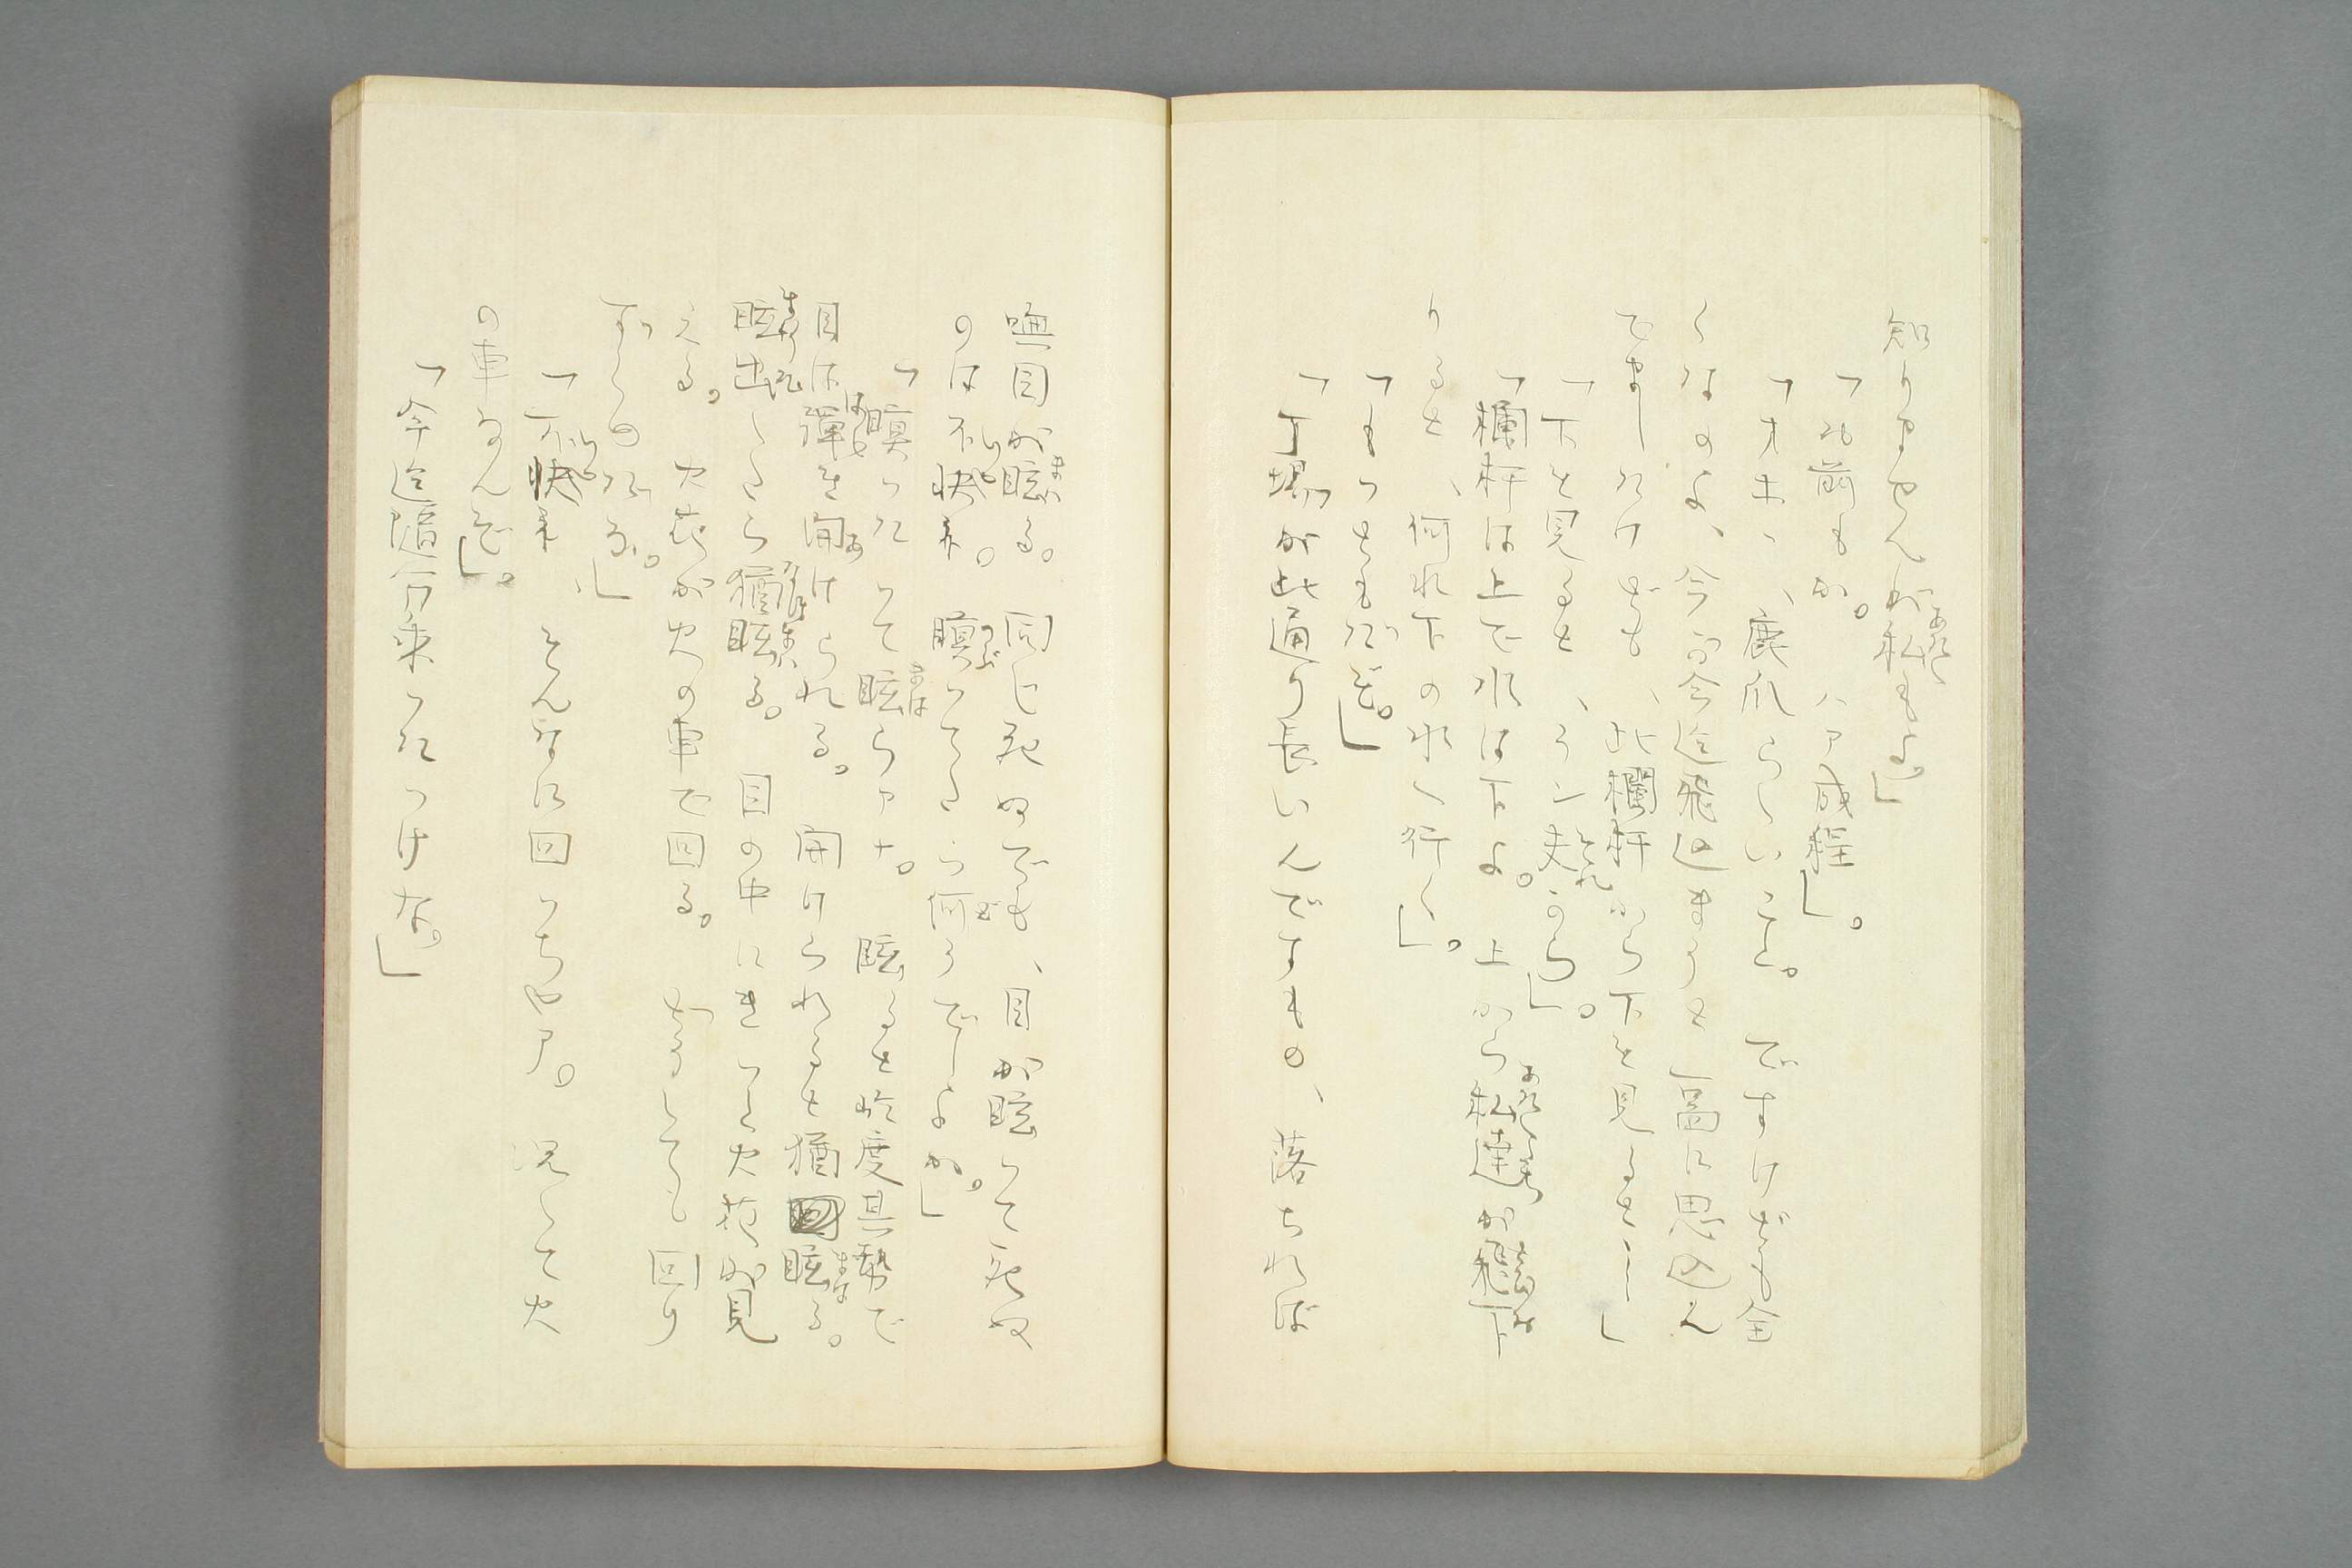 知りませんが私もよ。」
「お前もか。ハア成程」。
「オホヽ、鹿爪らしいこと。ですけども全
くなのよ、今の今迄飛込まうと一図に思込ん
でましたけども、此欄杆から下を見ると……」
「下を見ると、うン夫から」。
「欄杆は上で水は下よ。上から私達が飛下
りると、何れ下の水へ行く」。
「もつともだぞ。」
「丁場が此通り長いんですもの、落ちれば
嘸目が眩る。同じ死ぬでも、目が眩つて死ぬ
のは不快ネ。瞑つてたら何うでしよか。」
「瞑つたつて眩らアナ。眩ると吃度其勢で
目は彈き開けられる。開けられると猶眩る。
眩出したら猶眩る。目の中にきつと火花が見
える。火花が火の車で回る。どうしても回り
ずくめだな。」
「不快ネ、そんなに回つちやア。況して火
の車なんぞ」。
「今迄随分乗つたつけな。」